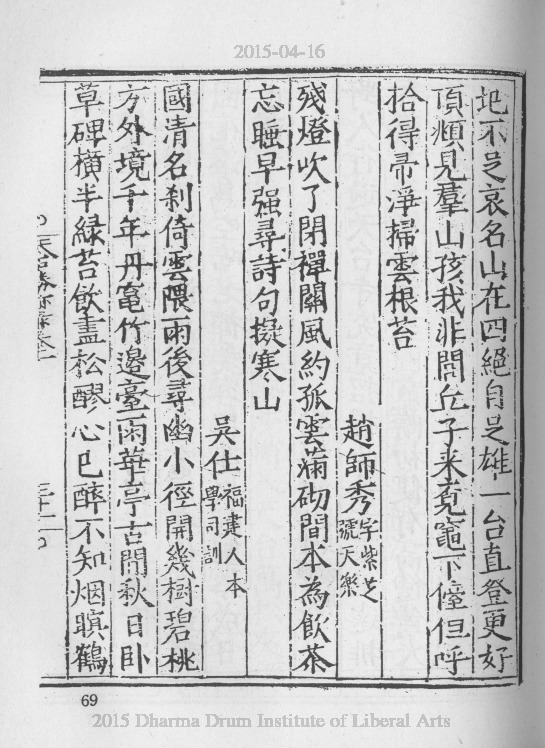 2015-04-16
圯不足哀名山在四絕自足雄一台直登更好
頂頫見羣山孩我非閭丘子来覔竈下僮但呼
拾得帚淨掃雲根苔
趙師秀字紫芝號天樂
殘燈吹了閉禪關風約孤雲滿砌間本為飲茶
忘睡早强尋詩句擬寒山
吳仕福建人本學司訓
國清名刹倚雲隈雨後尋幽小徑開幾樹碧桃
方外境千年丹竃竹邊臺雨華亭古閒秋日卧
草碑橫半緑苔飲盡松醪心已醉不知烟暝鶴
69
2015 Dharma Drum Institute of Liberal Arts